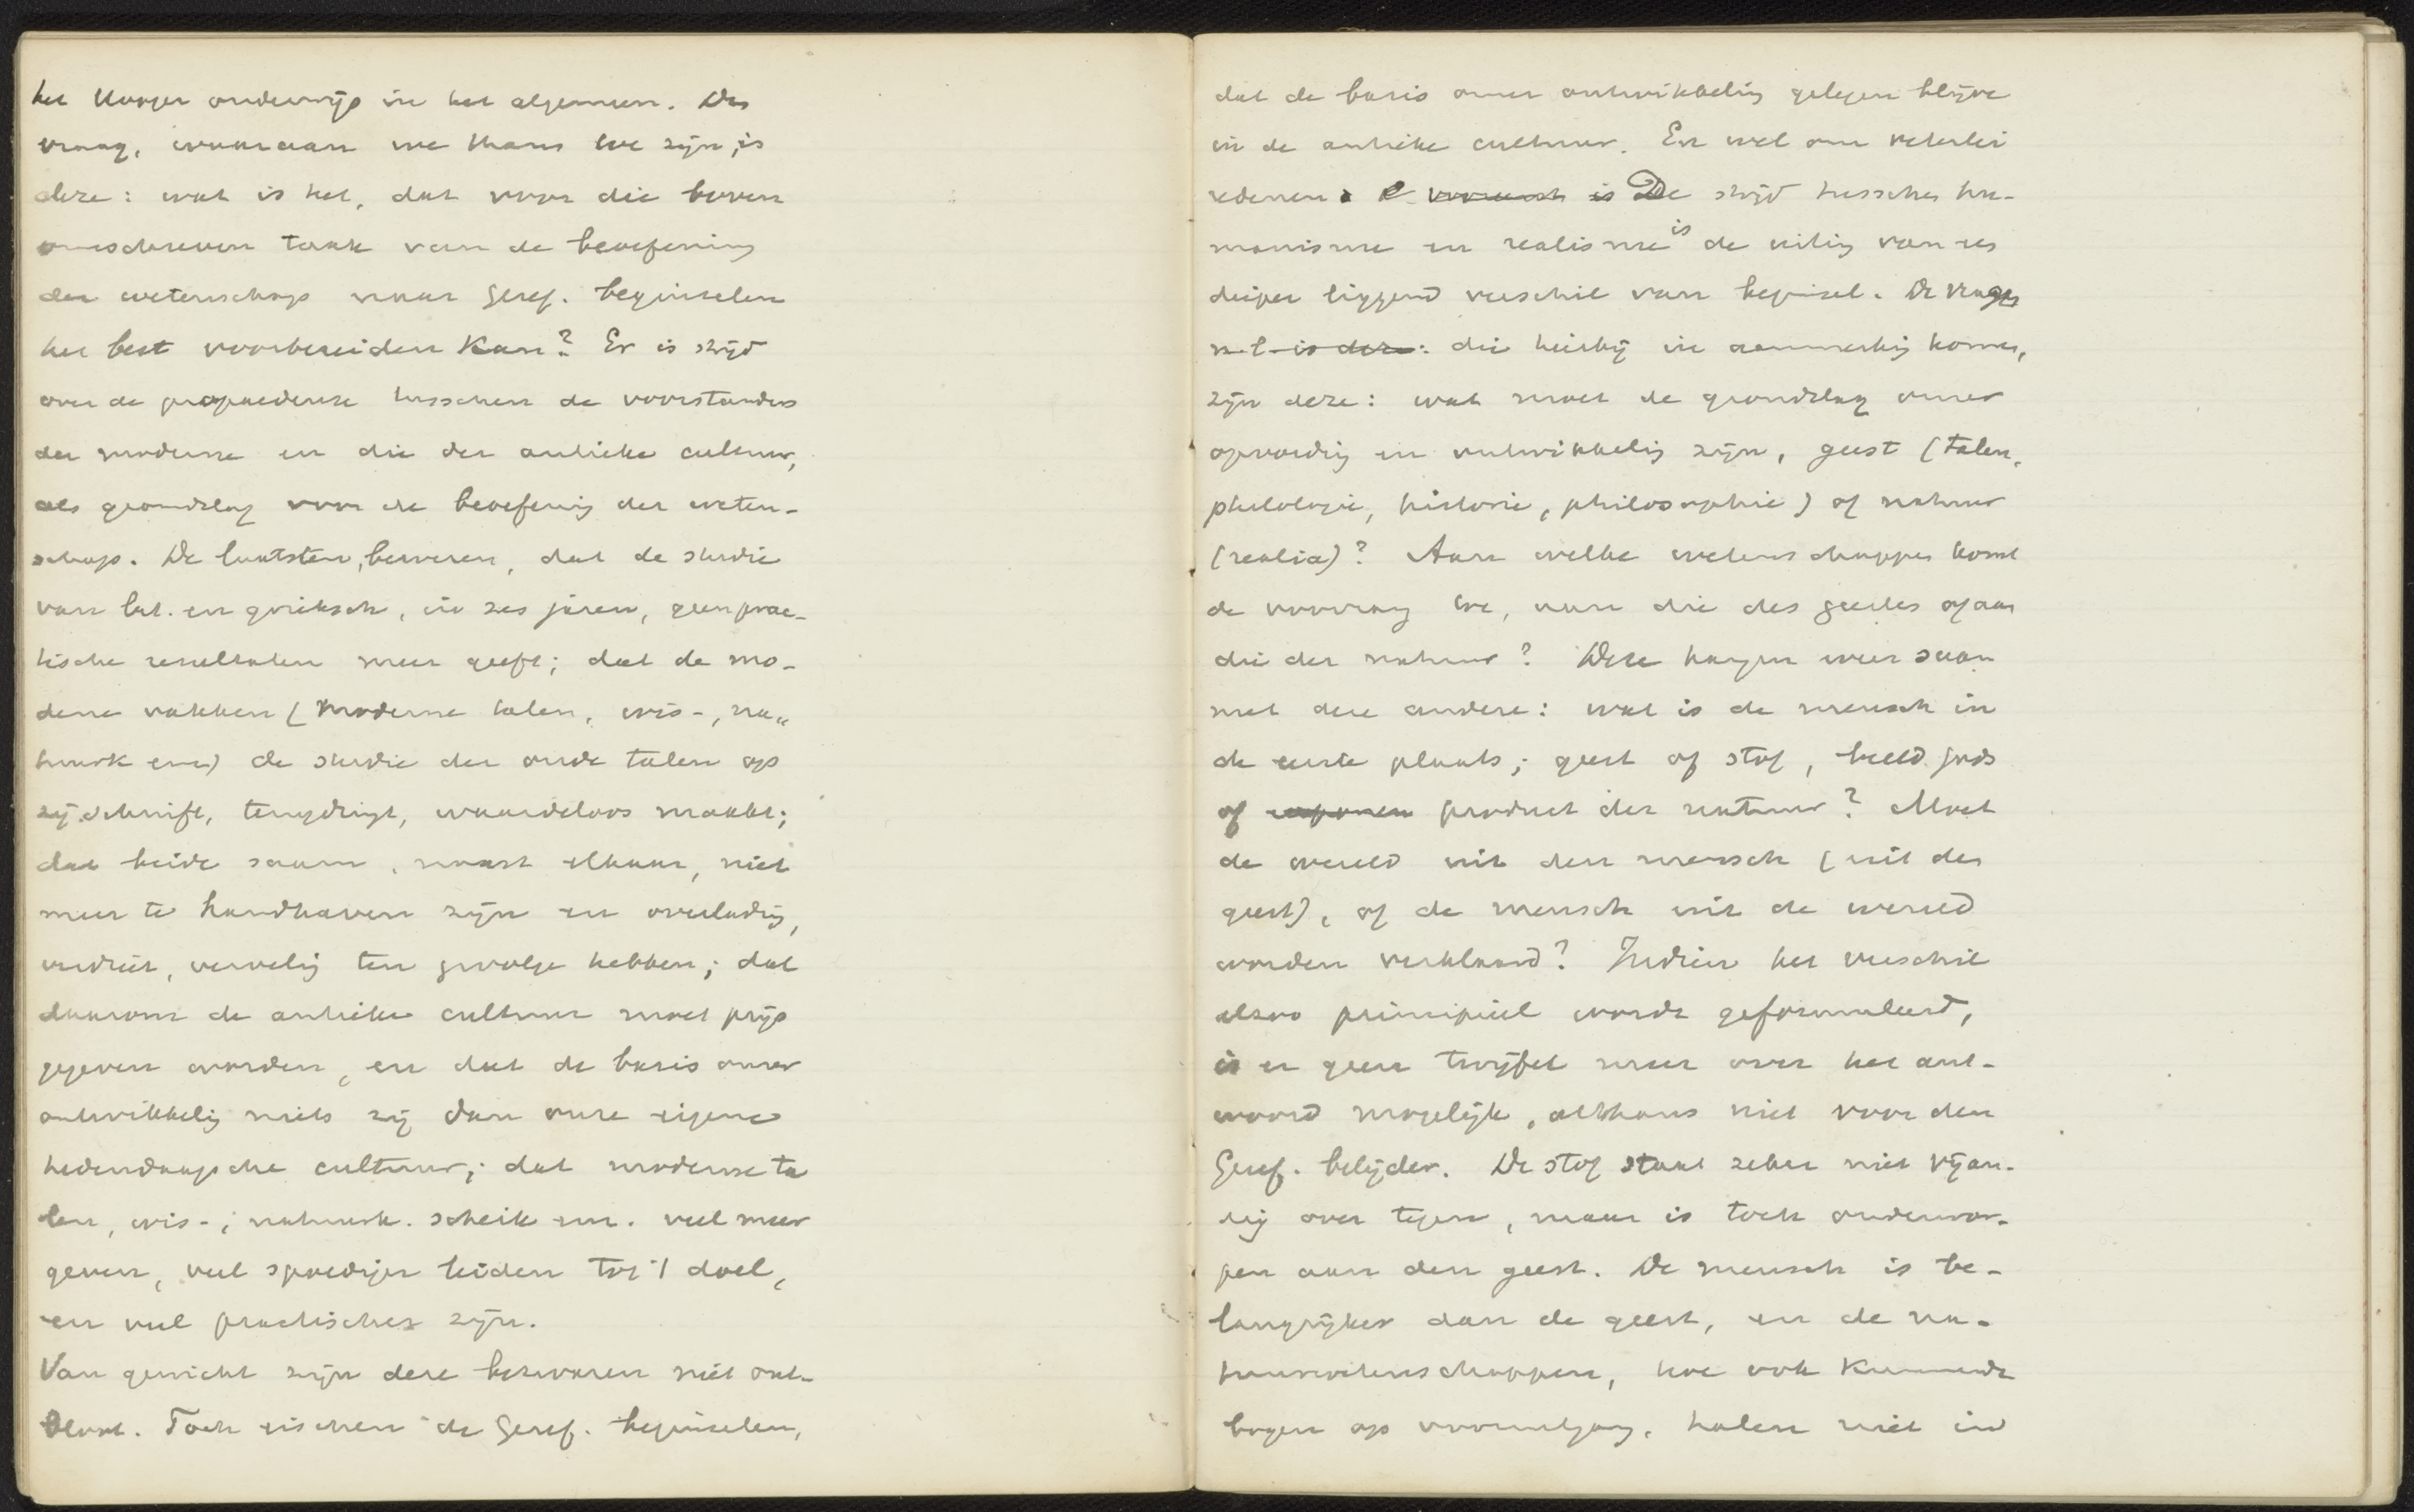 het Hooger onderwijs in het algemeen. De
vraag, waaraan we thans toe zijn, is
deze: wat is het, dat voor die boven
omschreven taak van de beoefening
der wetenschap naar Geref. beginselen
het best voorbereiden kan? Er is strijd
over de propaedeuse tusschen de voorstanders
der moderne en die der antieke cultuur,
als grondslag voor de beoefenig der weten-
schap. De laatsten, beweren, dat de studie
van lat. en grieksch, in zes jaren, geen prac-
tische resultaten meer geeft; dat de mo-
derne vakken (moderne talen, wis-, na„
tuurk enz) de studie der oude talen op
zij schuift, terugdringt, waardeloos maakt;
dat beide saam, naast elkaar, niet
meer te handhaven zijn en overladig,
verdriet, vervelig ten gevolge hebben; dat
daarom de antieke cultuur moet prijs
gegeven worden, en dat de basis onzer
ontwikkelig niets zij dan onze eigene
hedendaagsche cultuur; dat moderne ta
len, wis-, natuurk. scheik enz. veel meer
geven, veel spoediger leiden tot 't doel,
en veel practischer zijn.
Van gewicht zijn deze bezwaren niet ont-
bloot. Toch eischen de Geref. beginselen,
dat de basis onzer ontwikkeling gelegen blijve
in de antieke cultuur. En wel om velerlei
redenen is De strijd tusschen hu-
manisme en realisme is de uitig van een
dieper liggend verschil van beginsel. De vragen
n.l. is deze: die hierbij in aanmerkig komen,
zijn deze: wat moet de grondslag onzer
opvoedig en ontwikkelig zijn, geest (talen,
philologie, historie, philosophie) of natuur
(realia)? Aan welke wetenschappen komt
de voorrang toe, aan die des geestes of aan
die der natuur? Deze hangen weer saam
met deze andere: wat is de mensch in
de eerste plaats; geest of stof, beeld gods
of product der natuur? Moet
de wereld uit den mensch (uit den
geest), of de mensch uit de wereld
worden verklaard? Indien het verschil
alzoo principieel wordt geformuleerd,
is er geen twijfel meer over het ant-
woord mogelijk, althans niet voor den
Geref. belijder. De stof staat zeker niet vijan-
dig over tegen, maar is toch onderwor-
pen aan den geest. De mensch is be-
langrijker dan de geest, en de na-
tuurwetenschappen, hoe ook kunnende
bogen op vooruitgang, halen niet in